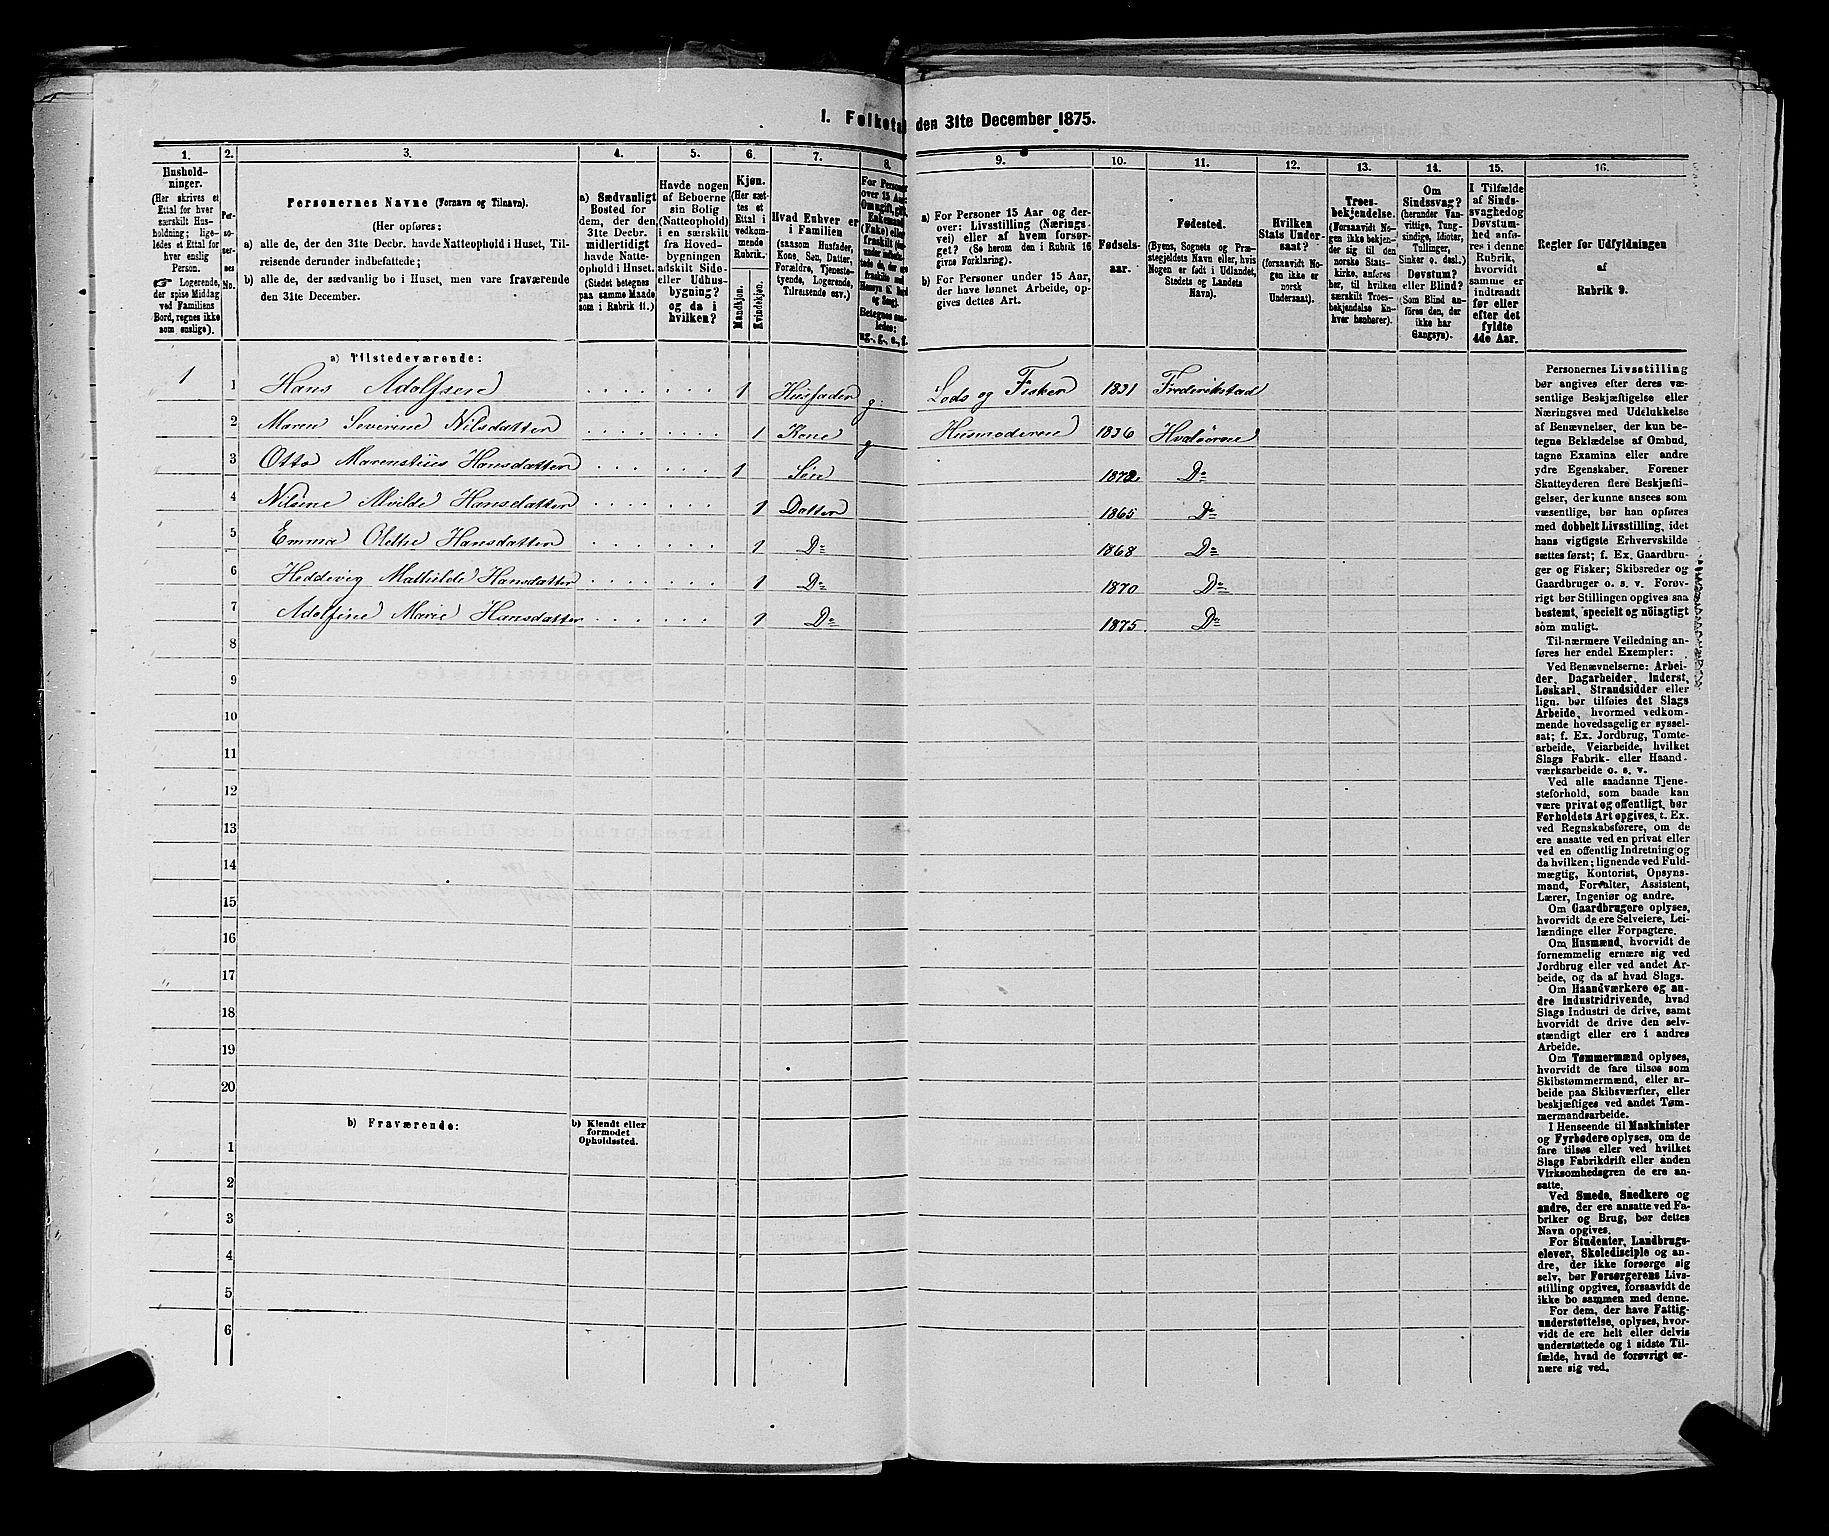 1. Folketal den 31te December 1875.
1.
Hushold-
ninger.
(Her skrives et
Ettal for hver
særskilt Hus-
holdning; lige-
ledes et Ettal for
hver enslig
Person.
☞ Logerende,
der spise Middag
ved Familiens
Bord, regnes ikke
som enslige).
2.
Per-
so-
ner-
nes
No.
3.
Personernes Navne (Fornavn og Tilnavn).
(Her opføres:
a) alle de, der den 31te Decbr. havde Natteophold i Huset, Til-
reisende derunder indbefattede;
b) alle de, der sædvanlig bo i Huset, men vare fraværende
den 31te December.
4.
a) Sædvanligt
Bosted for
dem, der den
31te Decbr.
midlertidigt
havde Natte-
ophold i Huset.
(Stedet betegnes
paa samme Maade
som i Rubrik 11.)
5.
Havde nogen
af Beboerne
sin Bolig
(Natteophold)
i en særskilt
fra Hoved-
bygningen
adskilt Side-
eller Udhus-
bygning?
og da i
hvilken?
6.
Kjøn.
(Her sæt-
tes et
Ettal i
vedkom-
mende
Rubrik.
Mandkjøn.
Kvindekjøn.
7.
Hvad Enhver er
i Familien
(saasom Husfader,
Kone, Søn, Datter,
Forældre, Tjeneste-
tyende, Logerende,
Tilreisende osv.)
8.
For Personer
over 15 Aar:
Om ugift, gift,
Enkemand
(Enke) eller
fraskilt
Betegnes saa-
ledes:
ug., g., e., f.
9.
a) For Personer 15 Aar og der-
over: Livsstilling (Nærings-
vei) eller af hvem forsør-
get? (Se herom den i Rubrik 16
givne Forklaring).
b) For Personer under 15 Aar,
der have lønnet Arbeide, op-
gives dettes Art.
10.
Fødsels-
aar.
11.
Fødested.
(Byens, Sognets og Præ-
stegjeldets Navn eller, hvis
Nogen er født i Udlandet,
Stedets og Landets
Navn).
12.
Hvilken
Stats Under-
saat?
(forsaavidt No-
gen ikke er
norsk
Undersaat).
13.
Troes-
bekjendelse.
(Forsaavidt No-
gen ikke bekjen-
der sig til den
norske Stats-
kirke, anføres
her, til hvilken
særskilt Troes-
bekjendelse En-
hver henhører).
14.
Om
Sindssvag?
(herunder Van-
vittige, Tung-
sindige, Idioter,
Tullinger,
Sinker o. desl.)
Døvstum?
eller Blind?
(Som Blind an-
föres den, der
ikke har
Gangsyn).
15.
I Tilfælde
af Sinds-
svaghed og
Døvstum-
hed anfø-
res i denne
Rubrik,
hvorvidt
samme er
indtraadt
før eller
efter det
fyldte
4de Aar.
16.
Regler for Udfyldningen
af
Rubrik 9.
a) Tilstedeværende:
1 1 Hans Adolfsen 1 Husfader g: Lods og Fisker 1831 Frederikstad
2 Maren Severine Nilsdatter 1 Kone g Husmoderen 1836 Hvaløerne
3 Otto Marenstius Hansdatter 1 Søn 1872 Do
4 Nilsine Alvilde Hansdatter 1 Datter 1865 Do
5 Emma Olette Hansdatter 1 Do 1868 Do
6 Heddevig Mathilde Hansdatter 1 Do 1870 Do
7 Adolfine Marie Hansdatter 1 Do 1875 Do
8
9
10
11
12
13
14
15
16
17
18
19
20
b) Fraværende:
b) Kjendt eller
formodet
Opholdssted.
1
2
3
4
5
6
Personernes Livsstilling
bør angives efter deres væ-
sentlige Beskjæftigelse eller
Næringsvei med Udelukkelse
af Benævnelser, der kun be-
tegne Beklædelse af Ombud,
tagne Examina eller andre
ydre Egenskaber. Forener
Skatteyderen flere Beskjæfti-
gelser, der kunne ansees som
væsentlige, bør han opføres
med dobbelt Livsstilling, idet
hans vigtigste Erhvervskilde
sættes først; f. Ex. Gaardbru-
ger og Fisker; Skibsreder og
Gaardbruger o. s. v. Forøv-
rigt bør Stillingen opgives saa
bestemt, specielt og nöiagtigt
som muligt.
Til nærmere Veiledning an-
føres her endel Exempler:
Ved Benævnelserne: Arbei-
der, Dagarbeider, Inderst,
Løskarl, Strandsidder eller
lign. bør tilføies det Slags
Arbeide, hvormed vedkom-
mende hovedsagelig er syssel-
sat; f. Ex. Jordbrug, Tomte-
arbeide, Veiarbeide, hvilket
Slags Fabrik- eller Haand-
værksarbeide o. s. v.
Ved alle saadanne Tjene-
steforhold, som baade kan
være privat og offentligt, bør
Forholdets Art opgives, t. Ex.
ved Regnskabsførere, om de
ere ansatte ved en privat eller
ved en offentlig Indretning og
da hvilken; lignende ved Fuld-
mægtig, Kontorist, Opsyns-
mand, Forvalter, Assistent,
Lærer, Ingeniør og andre.
Om Gaardbrugere oplyses,
hvorvidt de ere Selveiere, Lei-
lændinge eller Forpagtere.
Om Husmænd, hvorvidt de
fornemmelig ernære sig ved
Jordbrug eller ved andet Ar-
beide, og da af hvad Slags.
Om Haandværkere og an-
dre Industridrivende, hvad
Slags Industri de drive, samt
hvorvidt de drive den selv-
stændigt eller ere i andres
Arbeide.
Om Tømmermænd oplyses,
hvorvidt de fare tilsøs som
Skibstømmermænd, eller ar-
beide paa Skibsværfter, eller
beskjæftiges ved andet Tøm-
mermandsarbeide.
I Henseende til Maskinister
og Fyrbødere oplyses, om de
fare tilsøs eller ved hvilket
Slags Fabrikdrift eller anden
Virksomhedsgren de ere an-
satte.
Ved Smede, Snedkere og
andre, der ere ansatte ved Fa-
briker og Brug, bør dettes
Navn opgives.
For Studenter, Landbrugs-
elever, Skoledisciple og an-
dre, der ikke forsørge sig
selv, bør Forsørgerens Livs-
stilling opgives, forsaavidt de
ikke bo sammen med denne.
For dem, der have Fattig-
understøttelse, oplyses, hvor-
vidt de ere helt eller delvis
understøttede og i sidste Til-
fælde, hvad de forøvrigt er-
nære sig ved.